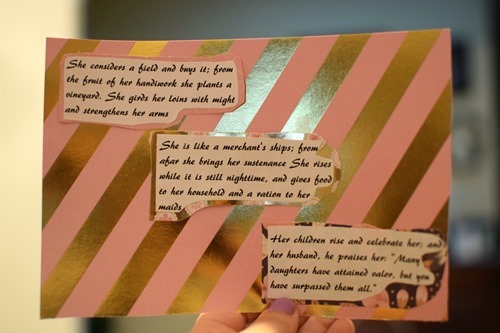 She considers a field and buys it; from
the fruit of her handwork she plants a
vineyard. She girds her loins with might
and strengthens her arms
She is like a merchant's ships; from
afar she brings her sustenance She rises
while it is still nighttime, and gives food
to her household and a ration to her
maids
Her children rise and celebrate her; and
her husband, he praises her: "Many
daughters have attained valor, but you
have surpassed them all."